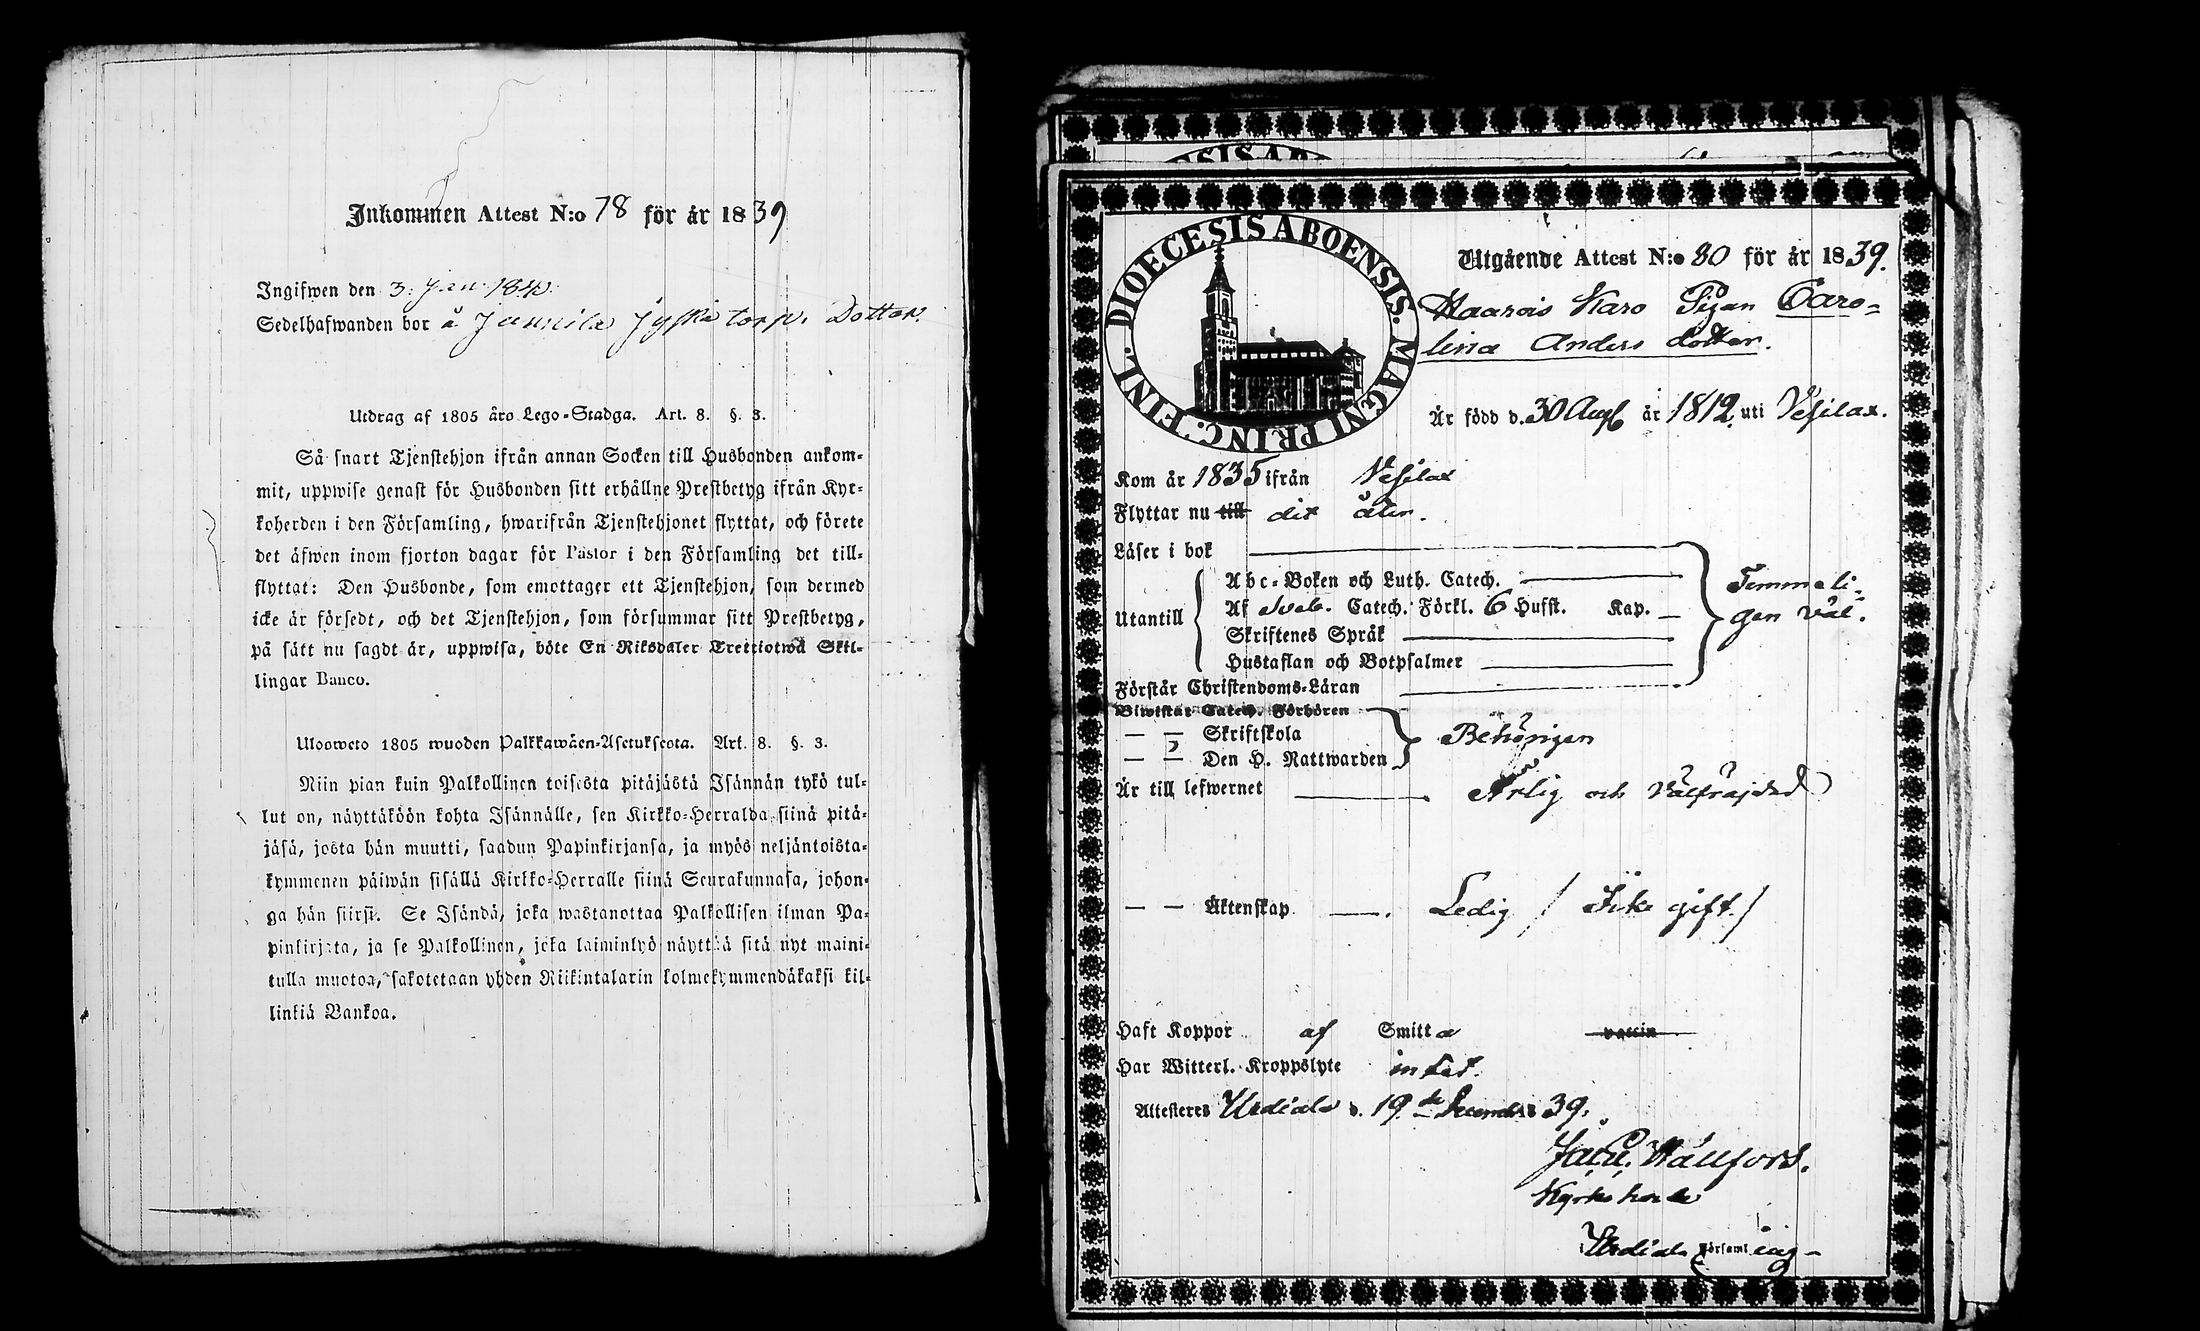 Inkommen Attest N:o 78 för år 1839
Ingifwen den 3. Jan. 1840.
Sedelhafwanden bor å Junnila Jyskä torp. Dotter.
Utdrag af 1805 års Lego-Stadga. Art. 8. §. 3.
Så snart Tjenstehjon ifrån annan Socken till Husbonden ankom-
mit, uppwise genast för Husbonden sitt erhållne Prestbetyg ifrån Kyr-
koherden i den Församling, hwarifrån Tjenstehjonet flyttat, och förete
det äfwen inom fjorton dagar för Pastor i den Församling det till-
flyttat: Den Husbonde, som emottager ett Tjenstehjon, som dermed
icke är försedt, och det Tjenstehjon, som försummar sitt Prestbetyg,
på sätt nu sagdt är, uppwisa, böte En Riksdaler Trettiotwå Skil-
lingar Banco.
Ulosweto 1805 wuoden Palkkawäen-Asetuksesta. Art. 8. §. 3.
Niin pian kuin Palkollinen toisesta pitäjästä Isännän tykö tul-
lut on, näyttäköön kohta Isännälle, sen Kirkko-Herralda siinä pitä-
jäsä, josta hän muutti, saadun Papinkirjansa, ja myös neljäntoista-
kymmenen päiwän sisällä Kirkko-Herralle siinä Seurakunnasa, johon-
ga hän siirsi. Se Isändä, joka wastanottaa Palkollisen ilman Pa-
pinkirjata, ja se Palkollinen, joka laiminlyö näyttää sitä nyt maini-
tulla muotoa, sakotetaan yhden Riikintalarin kolmekymmendäkaksi kil-
linkiä Bankoa.
DIOECESIS ABOENSIS. MAGNI PRINC. FINL.
Utgående Attest N:o 80 för år 1839.
Haarois Karo Pigan Caro-
lina Anders dotter.
Är född d. 30 Aug. år 1812. uti Vesilax.
Kom år 1835 ifrån Vesilax
Flyttar nu till dit åter.
Läser i bok
Abc-Boken och Luth. Catech.
Temmeli-
Utantill
Af Sveb. Catech. Förkl. 6 Hufst. Kap.
gen väl.
Skriftenes Språk
Hustaflan och Botpsalmer
Förstår Christendoms-Läran
Biwistar Catech. Förhören
— — Skriftskola
Behörigen
— — Den H. Nattwarden
Är till lefwernet Ärlig och Välfräjdad
— — Äktenskap Ledig / Icke gift. /
Haft Koppor af Smitta vaccin
Har Witterl. Kroppslyte intet.
Attesteres Urdiala d. 19de December 39.
Wällfors.
Kyrkoherde
i Urdiala Församling